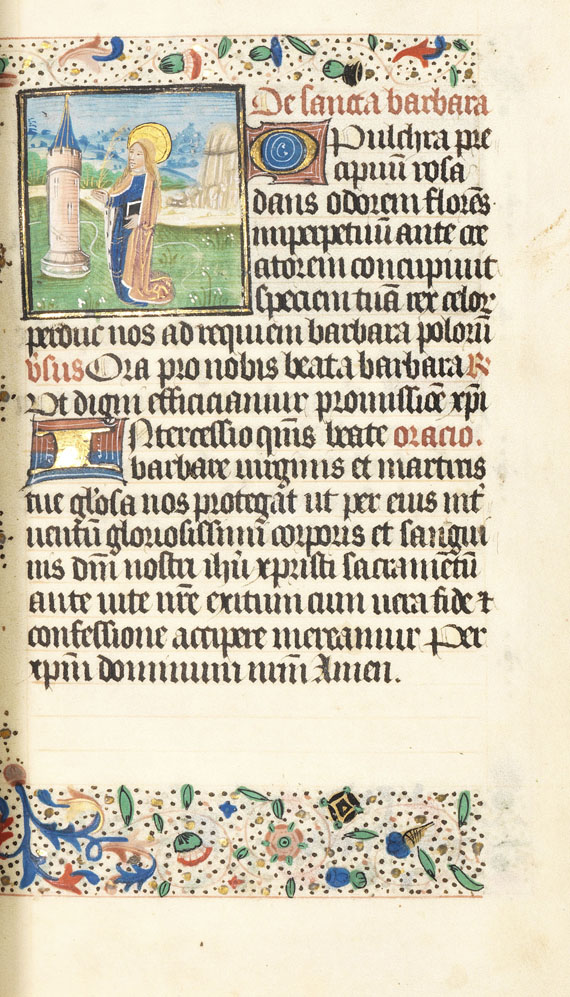 De sancta barbara
O Pulchra pre
cipuū rosa
dans odorem florēs
inperpetuū ante cre
atorem concupiuit
speciem tuā rex celoꝝ
perduc nos ad requiem barbara polorū
v̄sus Ora pro nobis beata barbara ℟
Vt digni efficiamur promissiōe xp̄i
INtercessio quīs beate oracio.
barbare uirginis et martiris
tue gl̓osa nos protegat ut per eius int̓
uentū gloriosissimi corporis et sangui
nis dn̄i nostri ihū xpristi sacramētū
ante uite nr̄e exitum cum uera fide ⁊
confessione accipere mereamur Per
xp̄m dominum nr̄m Amen.